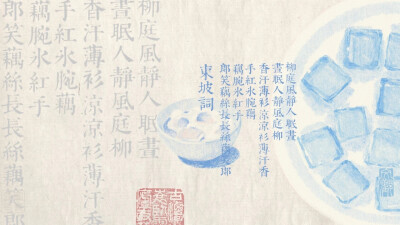 柳庭風靜人眠晝
晝眠人靜風庭柳
香汗薄衫涼涼衫薄汗香
手紅氷腕藕
藕腕氷紅手
郎笑藕絲長長絲藕笑郎
東坡詞
柳庭風靜人眠晝
晝眠人靜風庭柳
香汗薄衫涼涼衫薄汗香
手紅氷腕藕
藕腕氷紅手
郎笑藕絲長長絲藕笑